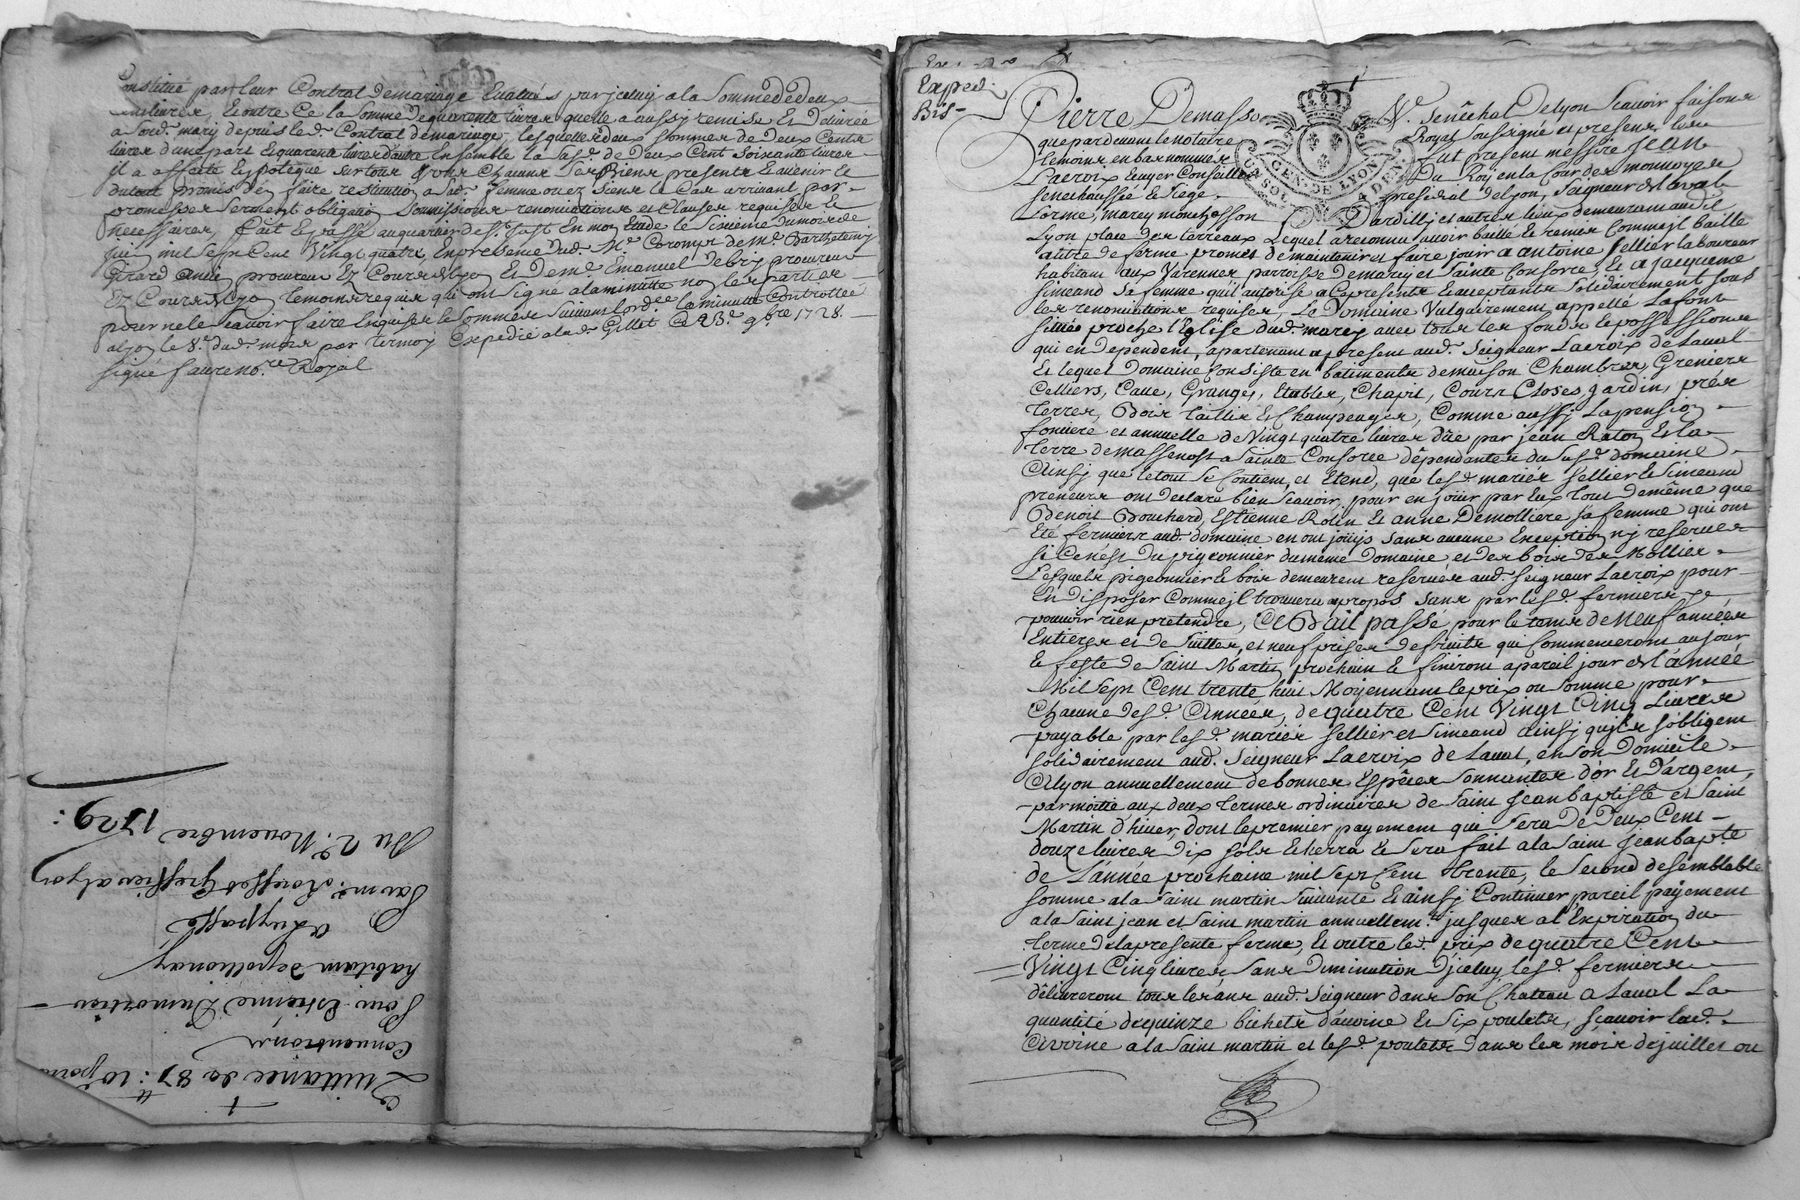 Constitué par leur Contrat de mariage Evalués par jceluy a la Somme de deux
cent livres, Et outre Ce la somme de quarente livres quelle a aussy remise Et delivrée
a Sond. mary depuis led. Contrat de mariage, lesquelles deux sommes de Deux Cents
livres d'une part Et quarente livres d'autre Ensemble la Sus d. de Deux Cent Soixante livres
Il a affecté Et ypotequé sur tous Et uns Chacuns Ses Biens presents Et avenir le
dutout promis d'en faire restitution a Sad. femme ou ez Siens le Cas arrivant par
promesses Serment obligation Soumissions renonciations et Clauses requises Et
necessaires, fait Et passé au quartier de St. Just En mon Etude le Sixieme du mois de
juin mil sept Cent Vingt quatre, En presence dud. Me. Crompt de Me. Barthelemy
Girard ancien procureur Ez Cours de Lyon Et de Me Emanuel Debry procureur
Ez Cours de Lyon temoins requis qui ont signé a la minutte non les parties
pour ne le Scavoir faire Enquises Et Sommées Suivant lord.ce la minutte Controllée
a Lyon le 8e. dud. mois par Termoz Expedié a lad. Gillet Ce 23e. 9bre 1728.
signé faure no.re Royal
Quittance de 87 : 10
Conventions
Pour Estienne Dumortier
habitant de pollionay
Cy passé
Par me. Greffier a Lyon
Du 2e. Novembre 1729 :
Exped.
Bis
Pierre Demasso N.e Senéchal De Lyon Scavoir faisons
que pardevant le Notaire Royal soussigné et present les
temoins en bas nommés fut present messire JEAN
Lacroix Ecuyer Conseiller Du Roy en la Cour des monnoyes
Senechaussée Et Siege presidial de Lyon, Seigneur de Laval
Lorme, marcy montchosson Dardilly et autres lieux demeurant aud.
Lyon place des terreaux Lequel a reconnu avoir baillé Et remis Comme jl baille
a titre de ferme promet de maintenir et faire jouir a antoine sellier laboureur
habitant aux Varennes parroisse de marcy et Sainte Consorce, Et a jacqueme
simeand sa femme quil autorise a Ce presents Et acceptants Solidairement sous
les renonciations requises, Le Domaine Vulgairement appellé Lafont
situés proche l'Eglise dud. marcy avec tous les fonds Et possessions
qui en dependent, apartenant a present aud. Seigneur Lacroix de Laval
Et lequel Domaine Consiste en batiments de maison Chambres, Greniers
Celliers, Cave, Granges, Etables, Chapit, Cours Closes, gardin, prés
Terres, Bois taillis Et Champeages, Comme aussy la pension
fonciere et annuelle de Vingt quatre livres düe par jean Raton Et la
terre de massenost a Sainte Consorce dépendantes du sus d. domaine
Ainsy que le tout se Contient, et Etend, que lesd. mariés sellier Et Simeand
preneurs ont declaré bien scavoir, pour en joüir par Eux tout de même que
Benoit Bouchard, Estienne Rolin Et anne Demolliere sa femme qui ont
Eté fermiers aud. domaine en ont joüys sans aucune Exception ny reserve
si Cenest du pigeonnier dumême Domaine et des bois des Mollier
Lesquels pigeonnier Et bois demeurent reservés aud. Seigneur Lacroix pour
En Disposer Comme jl trouvera apropos sans par lesd. fermiers y
pouvoir rien pretendre, Ce Bail passé pour le tems de Neuf années
Entieres et de suittes, et neuf prises de fruits qui Commenceront au jour
Et feste de Saint Martin prochain Et finiront a pareil jour de l'année
Mil sept Cent trente huit Moyennant le prix ou Somme pour
Chacune desd. Années, de quatre Cent Vingt Cinq Livres
payable par lesd. mariés sellier et Simeand ainsy quils sobligent
solidairement aud. Seigneur Lacroix de Laval, en son Domicile
A Lyon annuellement de bonnes Espêces Sonnantes d'or Et D'argent,
par moitié aux deux termes ordinaires de Saint Jean Baptiste et Saint
Martin d'hiver, dont le premier payement qui Sera De Deux Cent
douze livres dix sols Echerra Et Sera fait a la Saint Jean Bap.te
de L'année prochaine mil sept Cent trente, le Second de semblable
somme a la Saint martin suivante Et ainsy Continuer pareil payement
a la Saint jean et Saint martin annuellem.t jusques a l'Expiration du
terme de la presente ferme, Et outre led. prix de quatre Cent
Vingt Cinq livres sans Diminution D'jceluy lesd. fermiers
délivreront tous les ans aud. Seigneur dans son Chateau a Laval La
quantité de quinze bichets d'avoine Et Six poulets, scavoir lad.
Avoine a la Saint martin et lesd. poulets dans les mois de juillet ou